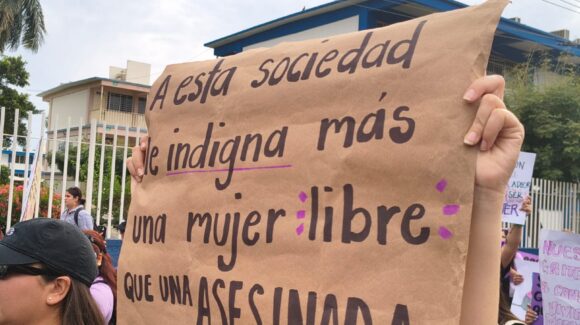 A esta sociedad
le indigna más
una mujer libre
QUE UNA ASESINADA
SER